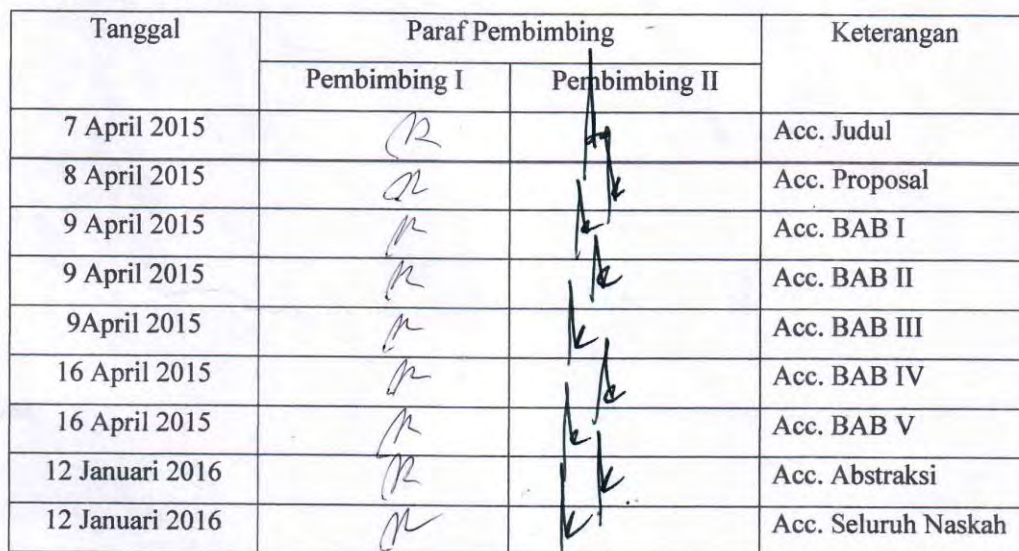 Tanggal Paraf Pembimbing Keterangan
Pembimbing I Pembimbing II
7 April 2015 Acc. Judul
8 April 2015 Acc. Proposal
9 April 2015 Acc. BAB I
9 April 2015 Acc. BAB II
9April 2015 Acc. BAB III
16 April 2015 Acc. BAB IV
16 April 2015 Acc. BAB V
12 Januari 2016 Acc. Abstraksi
12 Januari 2016 Acc. Seluruh Naskah